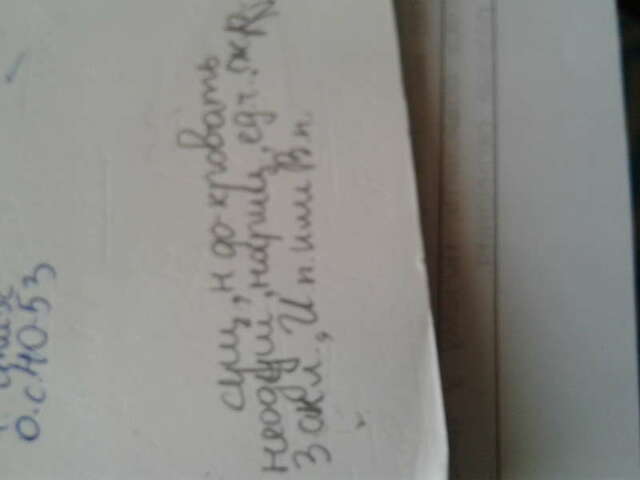 О.с.40.53
сущ, н ф-кровать
неодуш, нариц, ед ч. ж р,
3 скл., И п. или В. п.